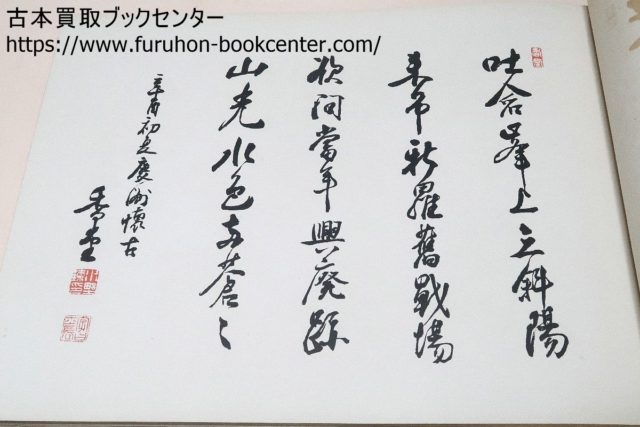 古本買取ブックセンター
https://www.furuhon-bookcenter.com/
吐含峯上立斜陽
来弔新羅舊戰場
欲問當年興廢跡
山光水色両蒼々
辛酉初夏慶州懐古
香堂